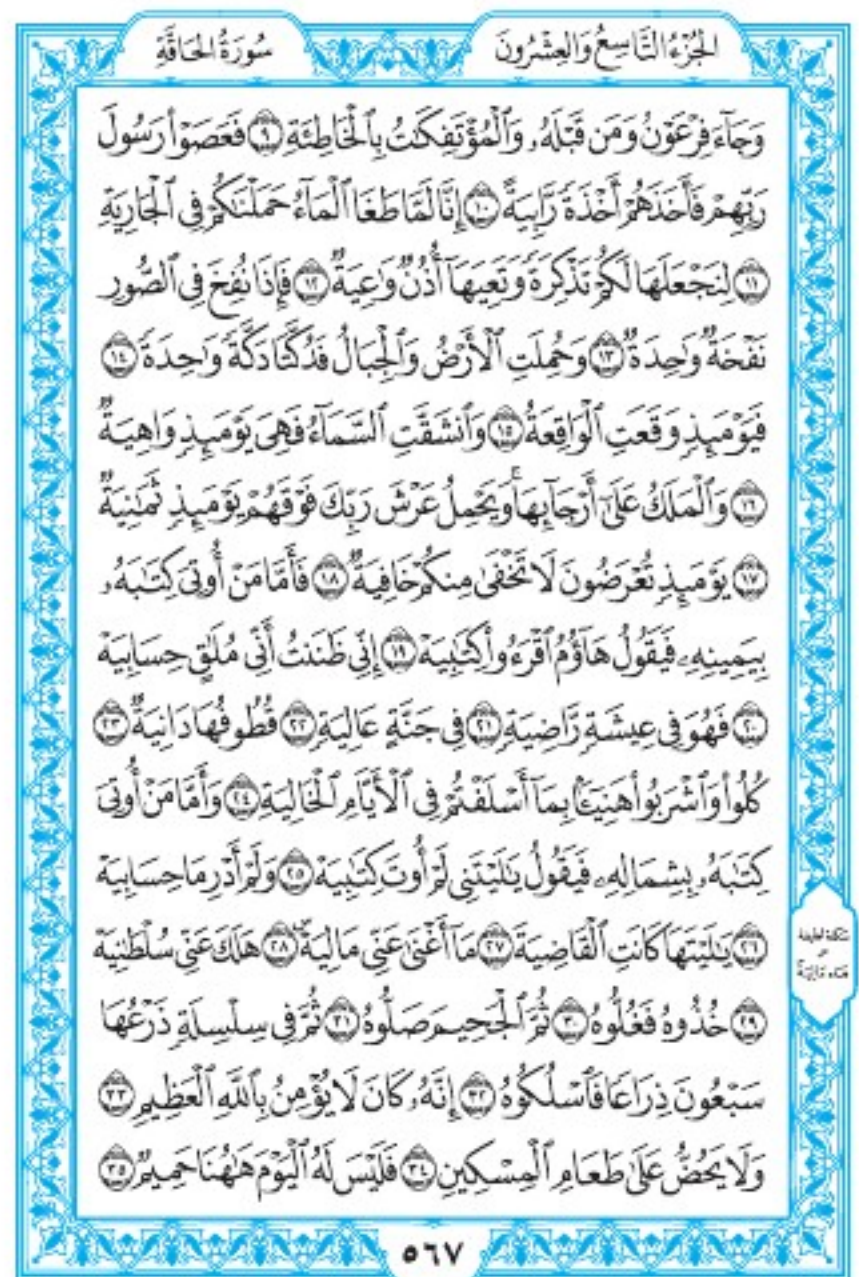 الجُزْءُ التَّاسِعُ وَالعِشْرُونَ
سُورَةُ الحَاقَّةِ
وَجَآءَ فِرْعَوْنُ وَمَن قَبْلَهُۥ وَٱلْمُؤْتَفِكَٰتُ بِٱلْخَاطِئَةِ ٩ فَعَصَوْا۟ رَسُولَ
رَبِّهِمْ فَأَخَذَهُمْ أَخْذَةً رَّابِيَةً ١٠ إِنَّا لَمَّا طَغَا ٱلْمَآءُ حَمَلْنَٰكُمْ فِى ٱلْجَارِيَةِ
١١ لِنَجْعَلَهَا لَكُمْ تَذْكِرَةً وَتَعِيَهَآ أُذُنٌ وَٰعِيَةٌ ١٢ فَإِذَا نُفِخَ فِى ٱلصُّورِ
نَفْخَةٌ وَٰحِدَةٌ ١٣ وَحُمِلَتِ ٱلْأَرْضُ وَٱلْجِبَالُ فَدُكَّتَا دَكَّةً وَٰحِدَةً ١٤
فَيَوْمَئِذٍ وَقَعَتِ ٱلْوَاقِعَةُ ١٥ وَٱنشَقَّتِ ٱلسَّمَآءُ فَهِىَ يَوْمَئِذٍ وَاهِيَةٌ
١٦ وَٱلْمَلَكُ عَلَىٰٓ أَرْجَآئِهَاۚ وَيَحْمِلُ عَرْشَ رَبِّكَ فَوْقَهُمْ يَوْمَئِذٍ ثَمَٰنِيَةٌ
١٧ يَوْمَئِذٍ تُعْرَضُونَ لَا تَخْفَىٰ مِنكُمْ خَافِيَةٌ ١٨ فَأَمَّا مَنْ أُوتِىَ كِتَٰبَهُۥ
بِيَمِينِهِۦ فَيَقُولُ هَآؤُمُ ٱقْرَءُوا۟ كِتَٰبِيَهْ ١٩ إِنِّى ظَنَنتُ أَنِّى مُلَٰقٍ حِسَابِيَهْ
٢٠ فَهُوَ فِى عِيشَةٍ رَّاضِيَةٍ ٢١ فِى جَنَّةٍ عَالِيَةٍ ٢٢ قُطُوفُهَا دَانِيَةٌ ٢٣
كُلُوا۟ وَٱشْرَبُوا۟ هَنِيٓـَٔۢا بِمَآ أَسْلَفْتُمْ فِى ٱلْأَيَّامِ ٱلْخَالِيَةِ ٢٤ وَأَمَّا مَنْ أُوتِىَ
كِتَٰبَهُۥ بِشِمَالِهِۦ فَيَقُولُ يَٰلَيْتَنِى لَمْ أُوتَ كِتَٰبِيَهْ ٢٥ وَلَمْ أَدْرِ مَا حِسَابِيَهْ
٢٦ يَٰلَيْتَهَا كَانَتِ ٱلْقَاضِيَةَ ٢٧ مَآ أَغْنَىٰ عَنِّى مَالِيَهْۜ ٢٨ هَلَكَ عَنِّى سُلْطَٰنِيَهْ
٢٩ خُذُوهُ فَغُلُّوهُ ٣٠ ثُمَّ ٱلْجَحِيمَ صَلُّوهُ ٣١ ثُمَّ فِى سِلْسِلَةٍ ذَرْعُهَا
سَبْعُونَ ذِرَاعًا فَٱسْلُكُوهُ ٣٢ إِنَّهُۥ كَانَ لَا يُؤْمِنُ بِٱللَّهِ ٱلْعَظِيمِ ٣٣
وَلَا يَحُضُّ عَلَىٰ طَعَامِ ٱلْمِسْكِينِ ٣٤ فَلَيْسَ لَهُ ٱلْيَوْمَ هَٰهُنَا حَمِيمٌ ٣٥
سكتة لطيفة
على
هاء مَالِيَهْ
٥٦٧